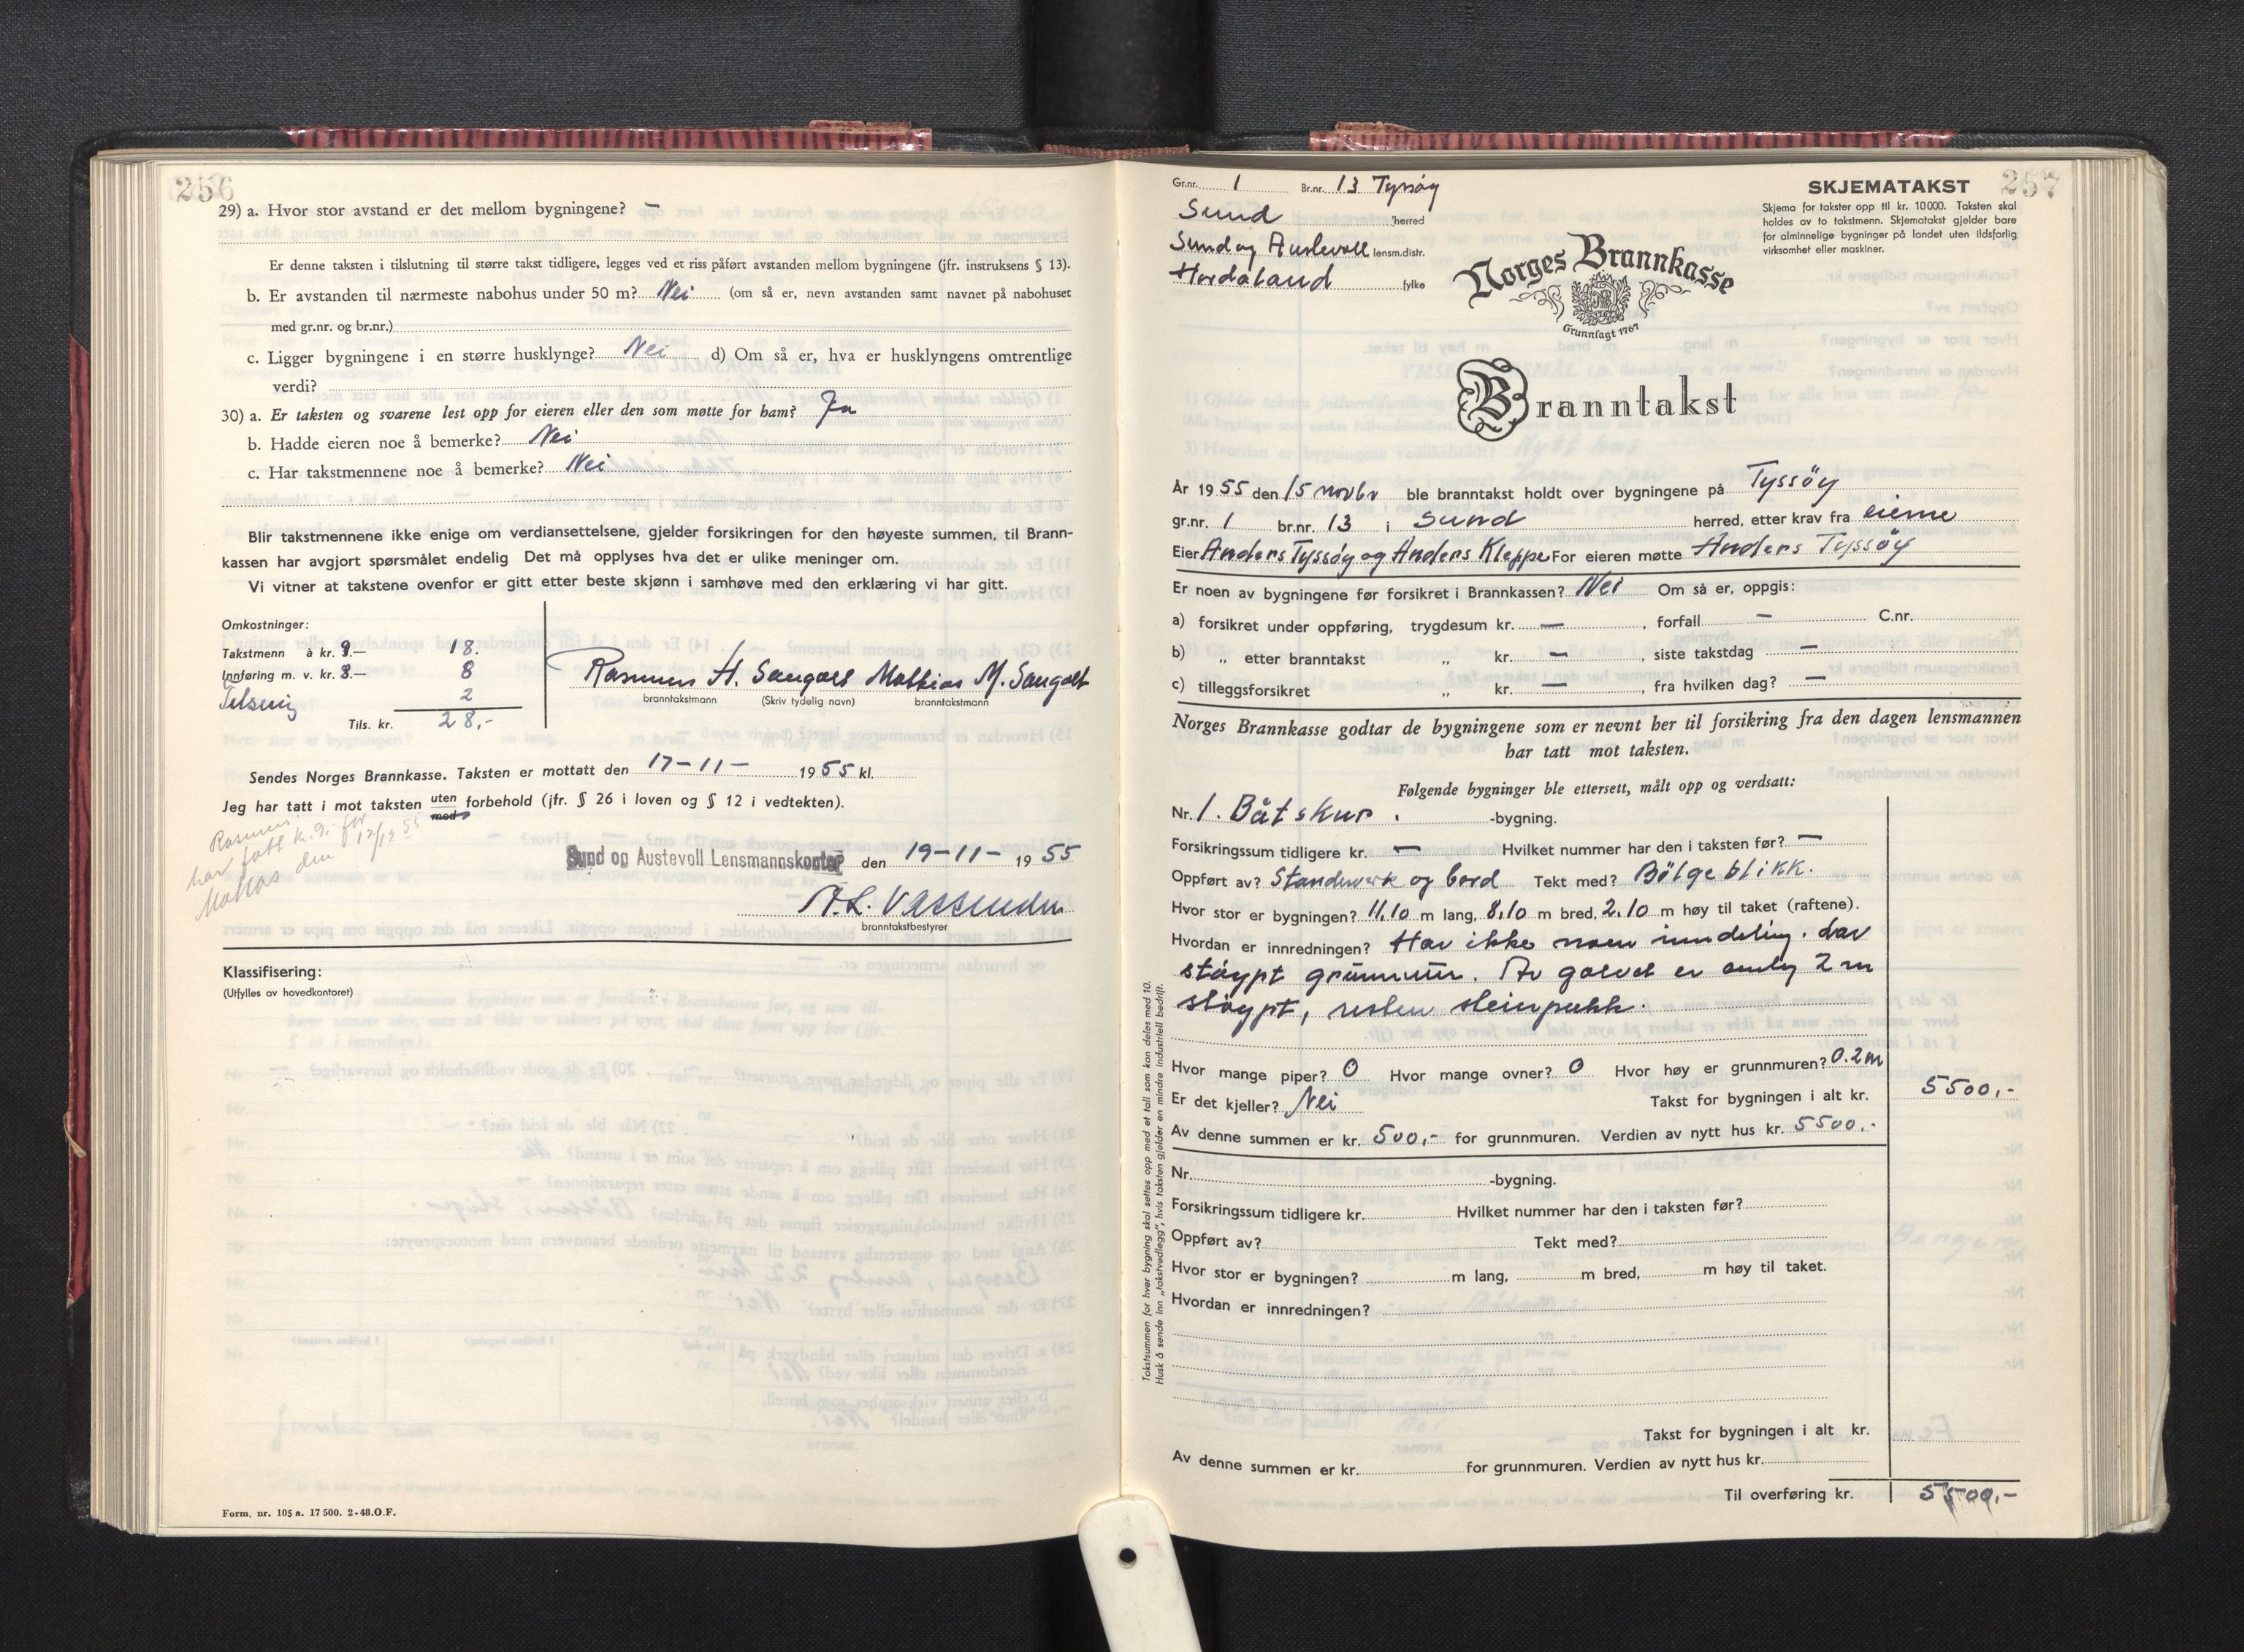 256
29) a. Hvor stor avstand er det mellom bygningene? —
Er denne taksten i tilslutning til større takst tidligere, legges ved et riss påført avstanden mellom bygningene (jfr. instruksens § 13).
b. Er avstanden til nærmeste nabohus under 50 m? Nei (om så er, nevn avstanden samt navnet på nabohuset
med gr.nr. og br.nr.)
c. Ligger bygningene i en større husklynge? Nei d) Om så er, hva er husklyngens omtrentlige
verdi?
30) a. Er taksten og svarene lest opp for eieren eller den som møtte for ham? Ja
b. Hadde eieren noe å bemerke? Nei
c. Har takstmennene noe å bemerke? Nei
Blir takstmennene ikke enige om verdiansettelsene, gjelder forsikringen for den høyeste summen, til Brann-
kassen har avgjort spørsmålet endelig Det må opplyses hva det er ulike meninger om.
Vi vitner at takstene ovenfor er gitt etter beste skjønn i samhøve med den erklæring vi har gitt.
Omkostninger:
Takstmenn à kr. 9.— 18.
Innføring m. v. kr. 8.— 8
2
Tils. kr. 28,-
Rasmus H. Sangolt Mathias M. Sangolt
branntakstmann (Skriv tydelig navn) branntakstmann
Sendes Norges Brannkasse. Taksten er mottatt den 17-11- 1955 kl.
Jeg har tatt i mot taksten uten forbehold (jfr. § 26 i loven og § 12 i vedtekten).
med
Rasmus
har fått k. 9,- for
Mathias den 17/12 55
Sund og Austevoll Lensmannskontor den 19-11- 1955
A.L. Vassenden
branntakstbestyrer
Klassifisering:
(Utfylles av hovedkontoret)
Form. nr. 105 a. 17 500. 2-48.O.F.
Gr.nr. 1 Br.nr. 13 Tyssöy
Sund herred
Sund og Austevoll lensm.distr.
Hordaland fylke
SKJEMATAKST 257
Skjema for takster opp til kr. 10 000. Taksten skal
holdes av to takstmenn. Skjematakst gjelder bare
for alminnelige bygninger på landet uten ildsfarlig
virksomhet eller maskiner.
Norges Brannkasse
Grunnlagt 1767
Branntakst
År 1955 den 15 novbr ble branntakst holdt over bygningene på Tyssöy
gr.nr. 1 br.nr. 13 i Sund herred, etter krav fra eierne
Eier Anders Tyssöy og Anders Kleppe For eieren møtte Anders Tyssöy
Er noen av bygningene før forsikret i Brannkassen? Nei Om så er, oppgis:
a) forsikret under oppføring, trygdesum kr. — , forfall — C.nr.
b) „ etter branntakst „ kr. — , siste takstdag —
c) tilleggsforsikret „ kr. — , fra hvilken dag? —
Norges Brannkasse godtar de bygningene som er nevnt her til forsikring fra den dagen lensmannen
har tatt mot taksten.
Følgende bygninger ble ettersett, målt opp og verdsatt:
Nr. 1. Båtskur . -bygning.
Forsikringssum tidligere kr. — Hvilket nummer har den i taksten før? —
Oppført av? Standerverk og bord Tekt med? Bölgeblikk.
Hvor stor er bygningen? 11.10 m lang, 8.10 m bred, 2.10 m høy til taket (raftene).
Hvordan er innredningen? Har ikke noen inndeling. har
stöypt grunnmur. Av golvet er omlag 2 m
stöypt, resten steinpukk.
Hvor mange piper? 0 Hvor mange ovner? 0 Hvor høy er grunnmuren? 0.2m
Er det kjeller? Nei Takst for bygningen i alt kr. 5500,-
Av denne summen er kr. 500,- for grunnmuren. Verdien av nytt hus kr. 5500.-
Nr. -bygning.
Forsikringssum tidligere kr. Hvilket nummer har den i taksten før?
Oppført av? Tekt med?
Hvor stor er bygningen? m lang, m bred, m høy til taket.
Hvordan er innredningen?
Takst for bygningen i alt kr.
Av denne summen er kr. for grunnmuren. Verdien av nytt hus kr.
Til overføring kr. 5500,-
Takstsummen for hver bygning skal settes opp med et tall som kan deles med 10.
Husk å sende inn „takstvedlegg”, hvis taksten gjelder en mindre industriell bedrift.